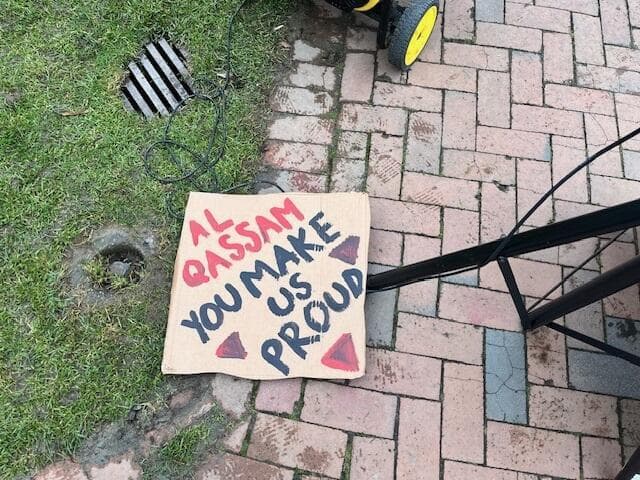 AL
QASSAM
YOU MAKE
US
PROUD